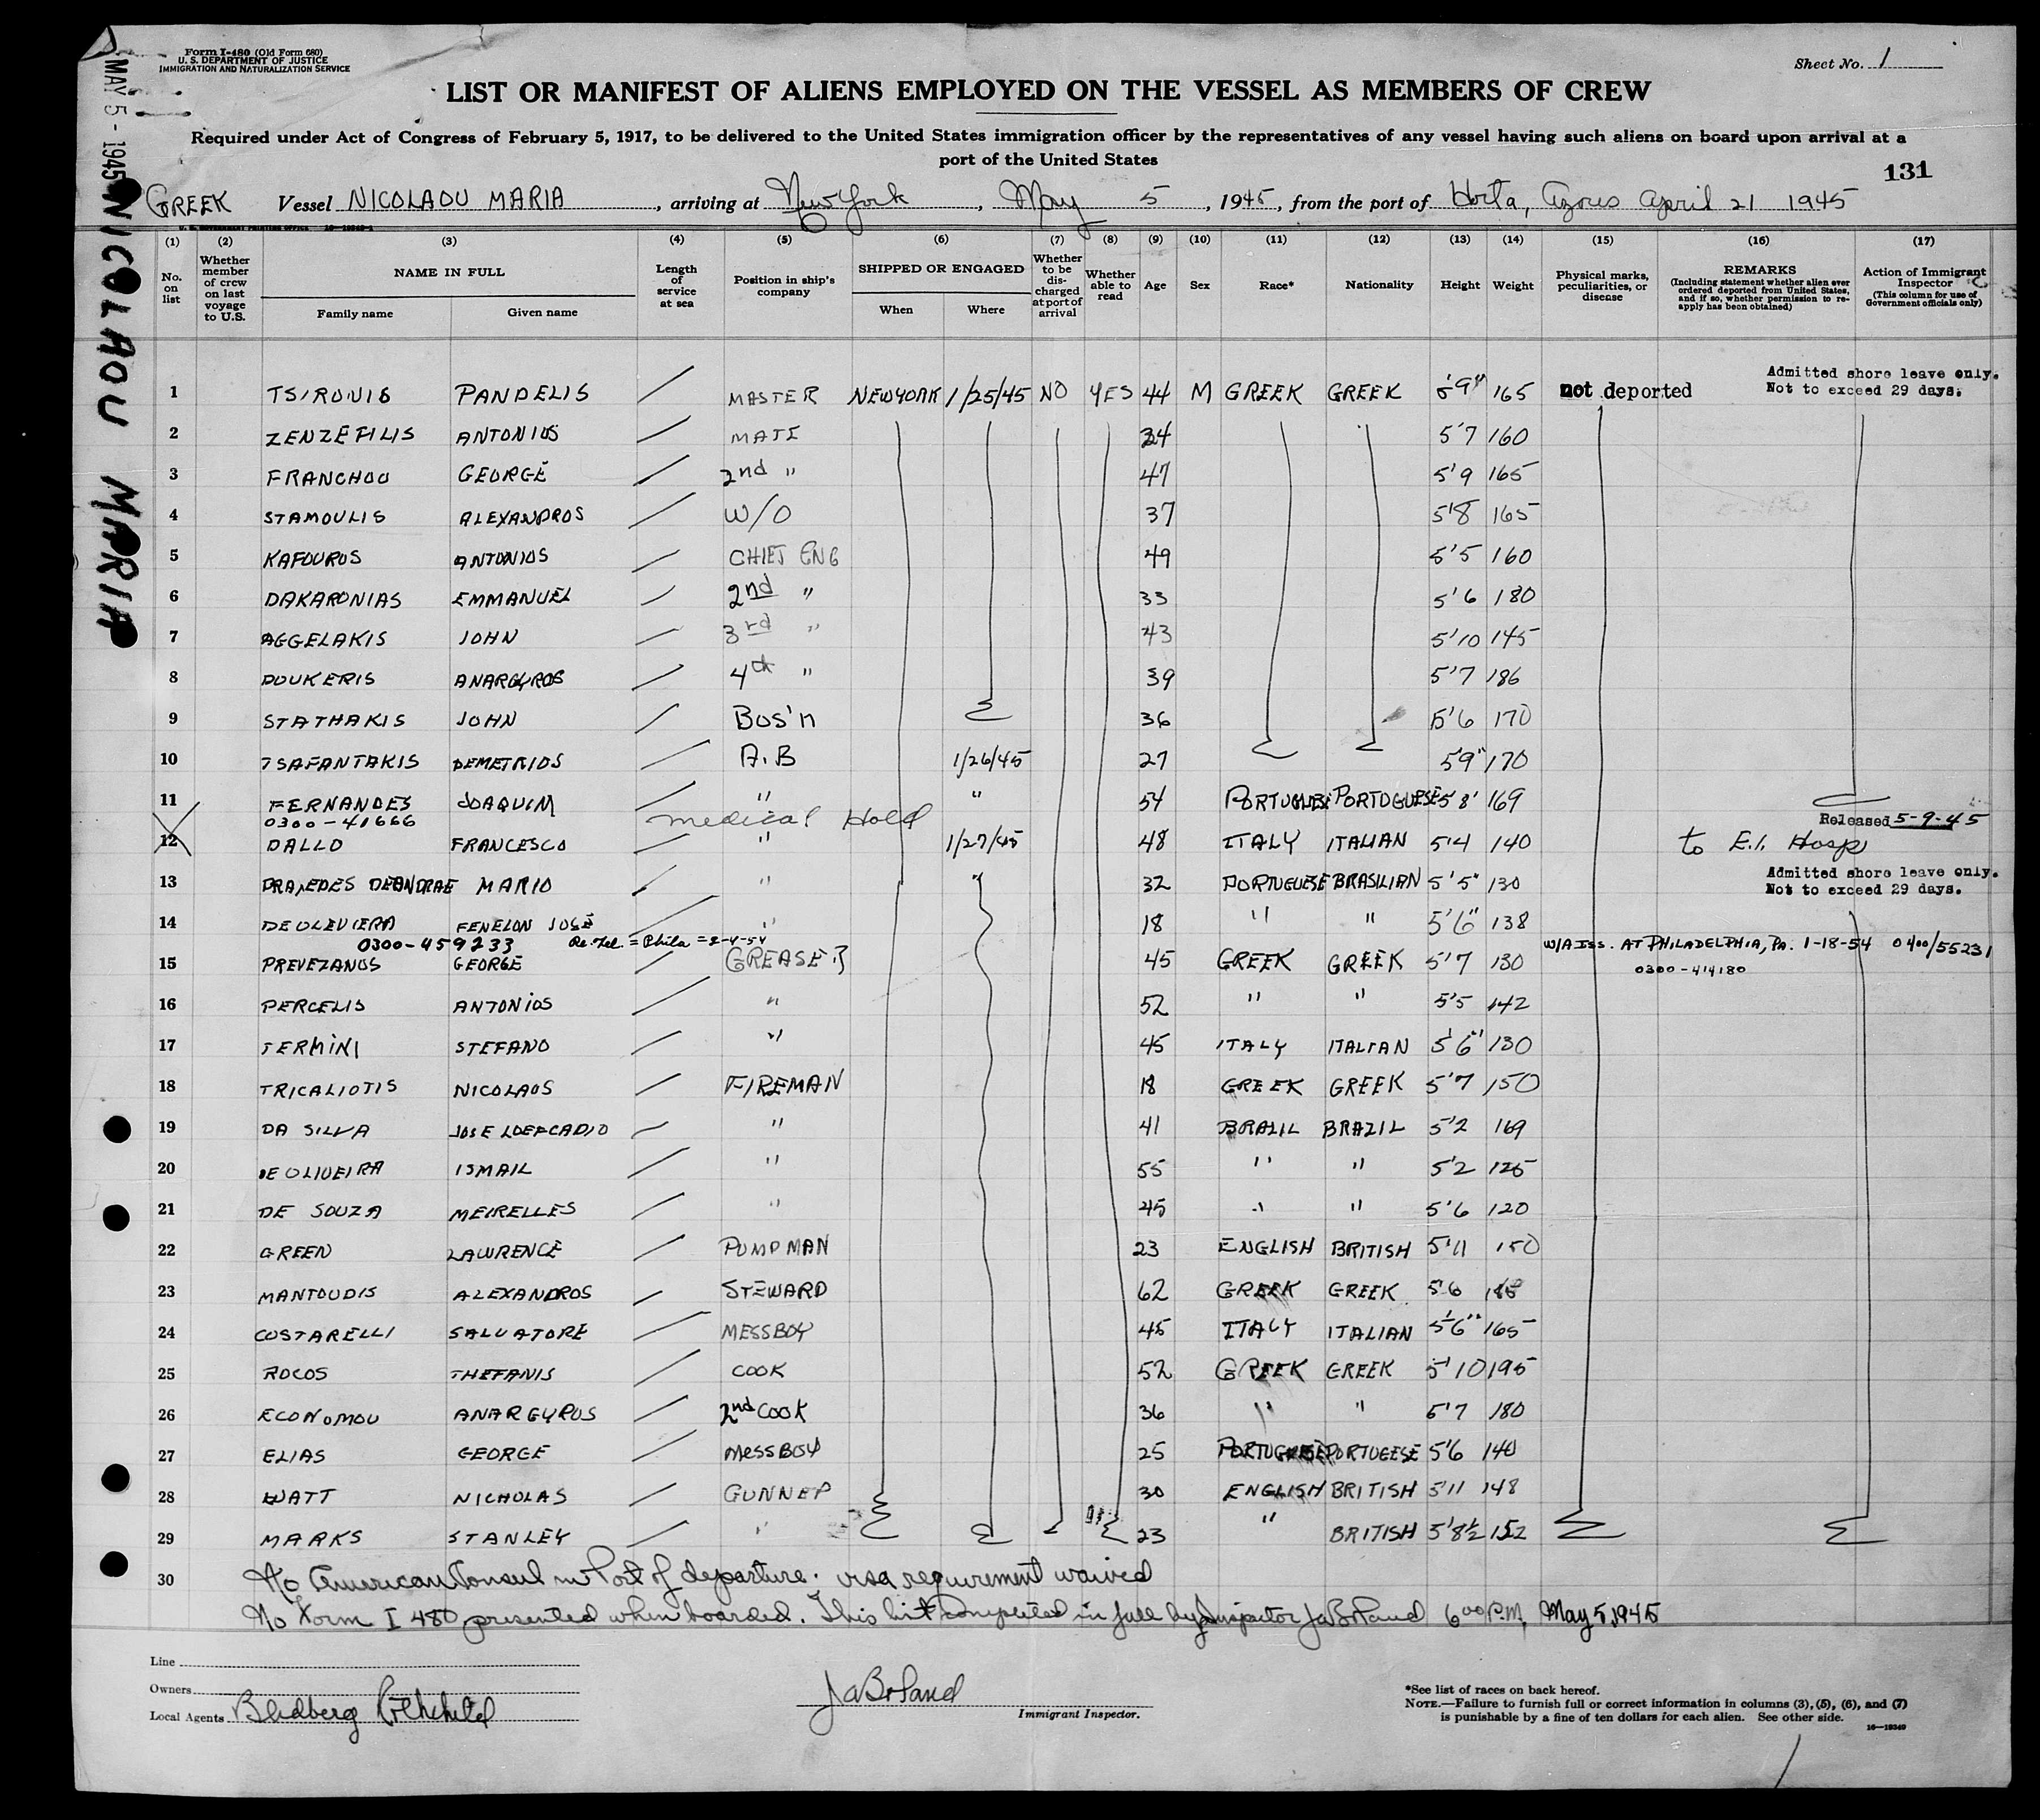 Form I-480 (Old Form 680)
U. S. DEPARTMENT OF JUSTICE
IMMIGRATION AND NATURALIZATION SERVICE
Sheet No. 1
LIST OR MANIFEST OF ALIENS EMPLOYED ON THE VESSEL AS MEMBERS OF CREW
Required under Act of Congress of February 5, 1917, to be delivered to the United States immigration officer by the representatives of any vessel having such aliens on board upon arrival at a
port of the United States
131
MAY 5 - 1945
NICOLAOU MARIA
GREEK Vessel NICOLAOU MARIA, arriving at New York, May 5, 1945, from the port of Horta, Azores April 21 1945
(1) (2) (3) (4) (5) (6) (7) (8) (9) (10) (11) (12) (13) (14) (15) (16) (17)
No. on list
Whether member of crew on last voyage to U.S.
NAME IN FULL
Family name Given name
Length of service at sea
Position in ship's company
SHIPPED OR ENGAGED
When Where
Whether to be discharged at port of arrival
Whether able to read
Age
Sex
Race*
Nationality
Height
Weight
Physical marks, peculiarities, or disease
REMARKS
(Including statement whether alien ever ordered deported from United States, and if so, whether permission to re-apply has been obtained)
Action of Immigrant Inspector
(This column for use of Government officials only)
Admitted shore leave only.
Not to exceed 29 days.
1 TSIRONIS PANDELIS MASTER NEW YORK 1/25/45 NO YES 44 M GREEK GREEK 5'9" 165 not deported
2 ZENZEFILIS ANTONIOS MATE 34 5'7 160
3 FRANCHOU GEORGE 2nd " 47 5'9 165
4 STAMOULIS ALEXANDROS W/O 37 5'8 165
5 KAFOUROS ANTONIOS CHIEF ENG 49 5'5 160
6 DAKARONIAS EMMANUEL 2nd " 33 5'6 180
7 AGGELAKIS JOHN 3rd " 43 5'10 145
8 DOUKERIS ANARGYROS 4th " 39 5'7 186
9 STATHAKIS JOHN Bos'n 36 5'6 170
10 TSAFANTAKIS DEMETRIOS A.B 1/26/45 27 5 9" 170
11 FERNANDES JOAQUIM " " 54 PORTUGUESE PORTOGUESE 5'8' 169
0300-41666 medical Hold Released 5-9-45
12 DALLO FRANCESCO " 1/27/45 48 ITALY ITALIAN 5'4 140 to E.I. Hosp
Admitted shore leave only.
Not to exceed 29 days.
13 PRAXEDES DEANDRAE MARIO " " 32 PORTUGUESE BRASILIAN 5'5" 130
14 DEOLEVIERA FENELON JOSE " 18 " " 5'6" 138
0300-459233 Re. Tel. = Phila = 2-4-54 W/A ISS. AT PHILADELPHIA, PA. 1-18-54 0400/55231
15 PREVEZANOS GEORGE GREASER 45 GREEK GREEK 5'7 130 0300-414180
16 PERCELIS ANTONIOS " 52 " " 5'5 142
17 TERMINI STEFANO " 45 ITALY ITALIAN 5'6" 130
18 TRICALIOTIS NICOLAOS FIREMAN 18 GREEK GREEK 5'7 150
19 DA SILVA JOSE LOEFCADIO " 41 BRAZIL BRAZIL 5'2 169
20 DE OLIVEIRA ISMAIL " 55 " " 5'2 125
21 DE SOUZA MEIRELLES " 45 " " 5'6 120
22 GREEN LAWRENCE PUMPMAN 23 ENGLISH BRITISH 5'11 150
23 MANTOUDIS ALEXANDROS STEWARD 62 GREEK GREEK 5'6
24 COSTARELLI SALVATORE MESSBOY 45 ITALY ITALIAN 5'6" 165
25 ROCOS THEFANIS COOK 52 GREEK GREEK 5'10 195
26 ECONOMOU ANARGYROS 2nd COOK 36 " " 5'7 180
27 ELIAS GEORGE MESSBOY 25 PORTUGUESE PORTUGEESE 5'6 140
28 WATT NICHOLAS GUNNER 30 ENGLISH BRITISH 5'11 148
29 MARKS STANLEY " 23 " BRITISH 5'8½ 152
30 No American Consul in Port of departure. visa requirement waived
No Form I 480 presented when boarded. This list completed in full by Inspector JaBoland 6 00 P.M. May 5, 1945
Line
Owners
Local Agents
JaBoland
Immigrant Inspector.
*See list of races on back hereof.
NOTE.—Failure to furnish full or correct information in columns (3), (5), (6), and (7)
is punishable by a fine of ten dollars for each alien. See other side.
16—19349